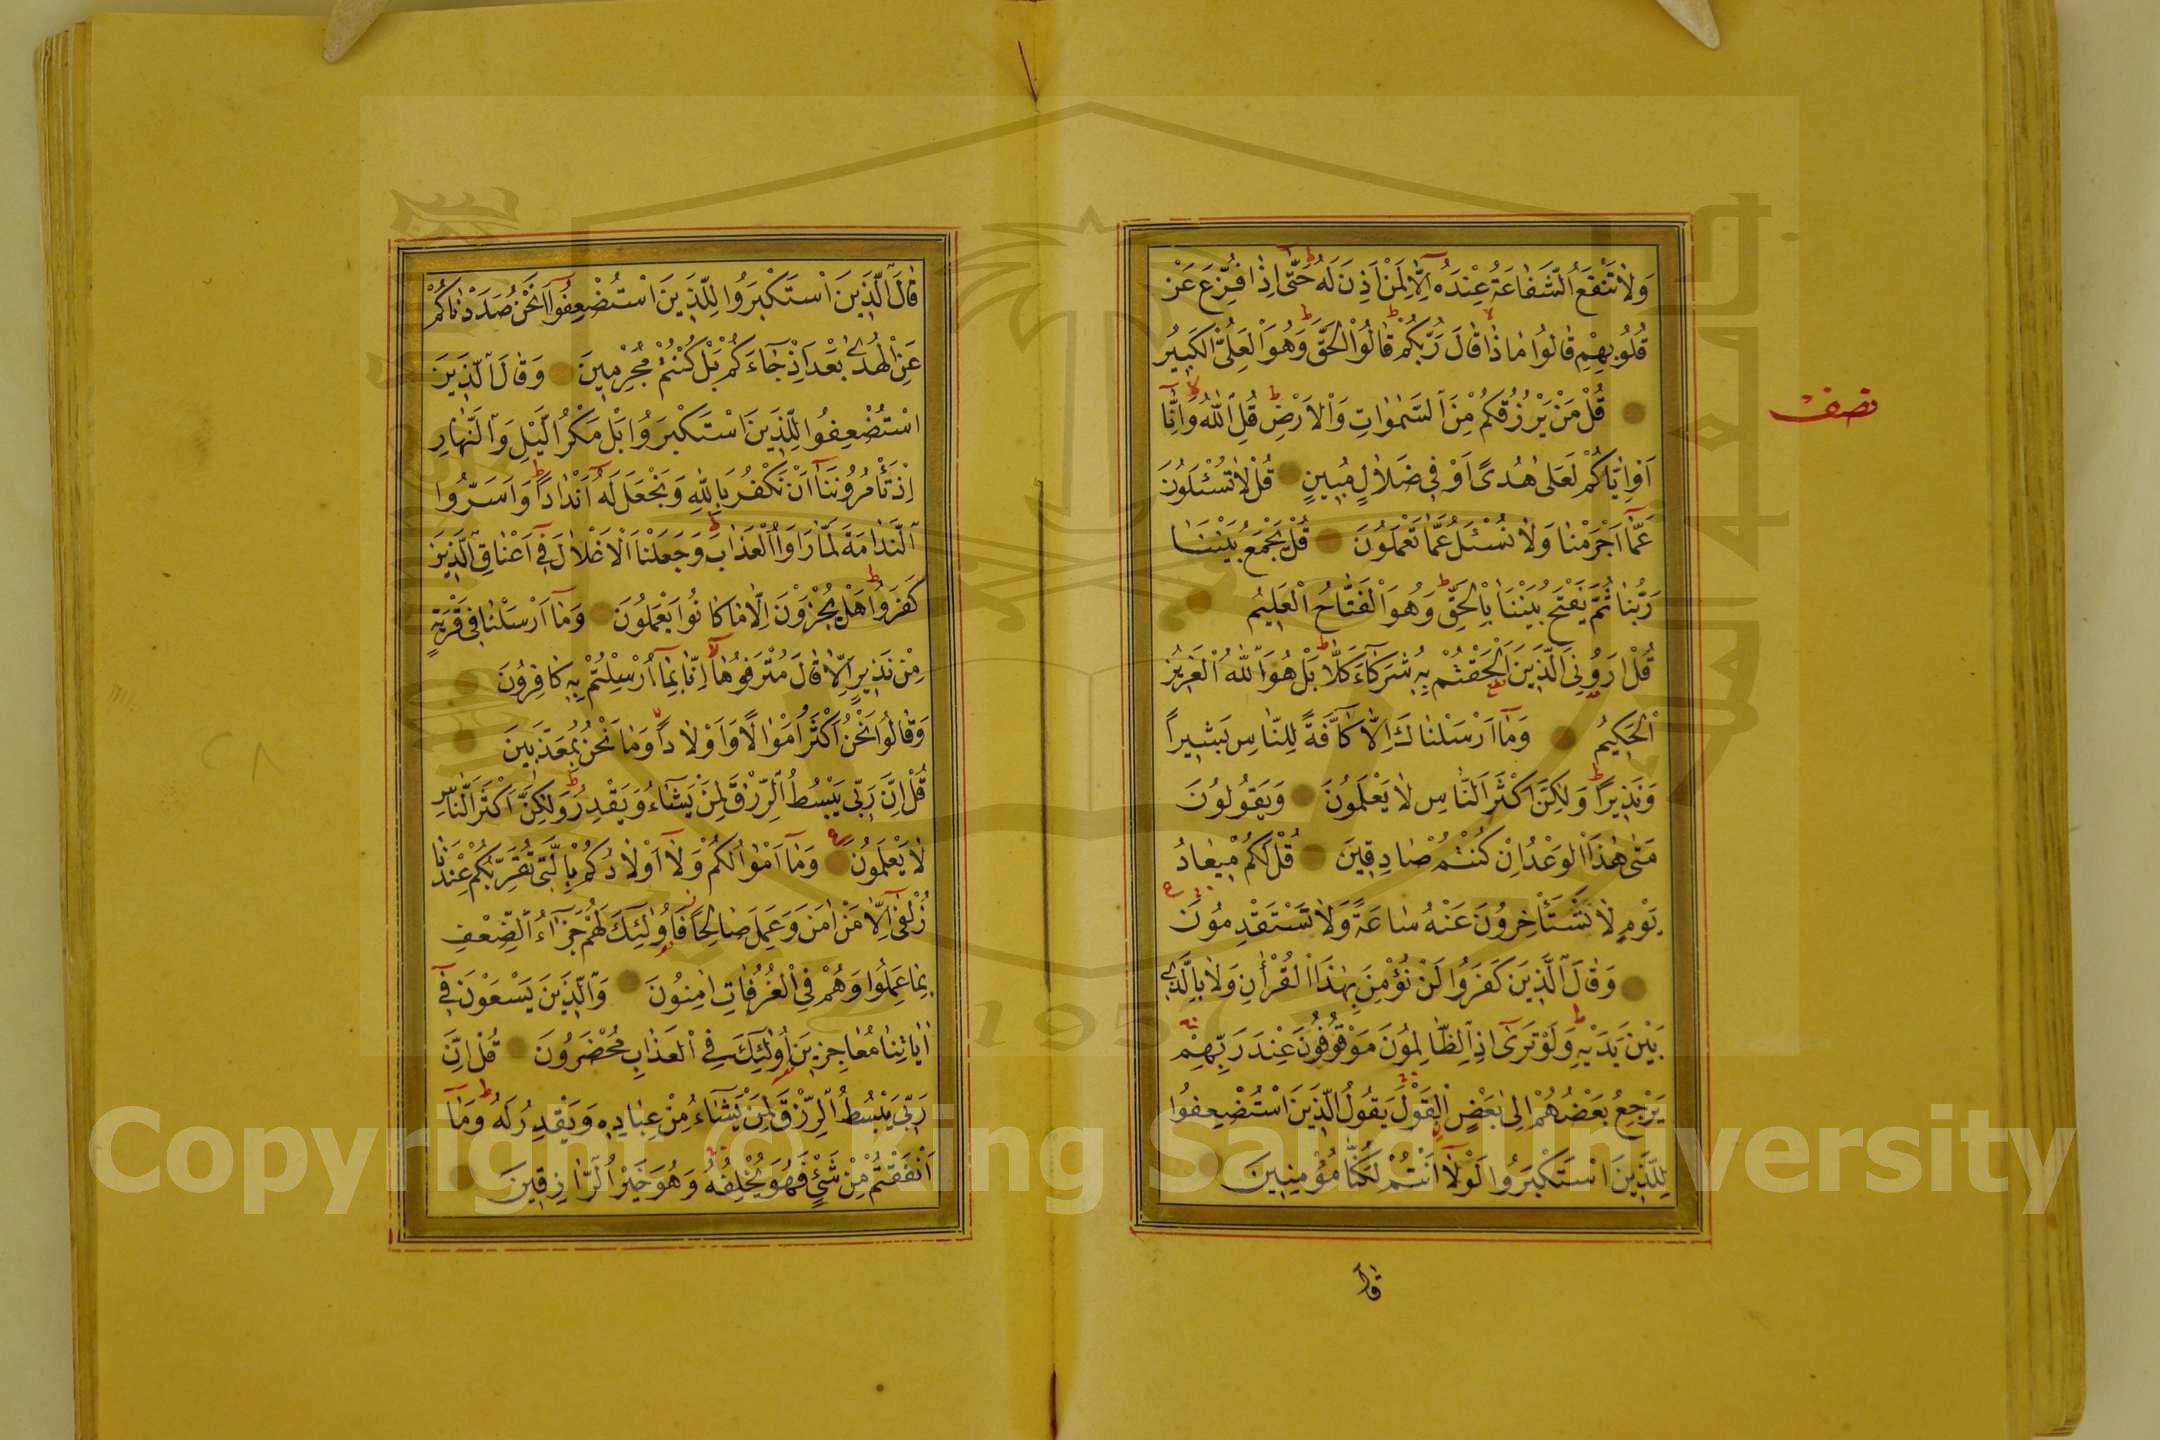 وَلَا تَنْفَعُ الشَّفَاعَةُ عِنْدَهُ اِلَّا لِمَنْ اَذِنَ لَهُ حَتّٰى اِذَا فُزِّعَ عَنْ
قُلُوبِهِمْ قَالُوا مَاذَا قَالَ رَبُّكُمْ قَالُوا الْحَقَّ وَهُوَ الْعَلِىُّ الْكَبِيرُ
قُلْ مَنْ يَرْزُقُكُمْ مِنَ السَّمٰوَاتِ وَالْاَرْضِ قُلِ اللّٰهُ وَاِنَّا
نصف
اَوْ اِيَّاكُمْ لَعَلٰى هُدًى اَوْ فِى ضَلَالٍ مُبِينٍ قُلْ لَا تُسْئَلُونَ
عَمَّا اَجْرَمْنَا وَلَا نُسْئَلُ عَمَّا تَعْمَلُونَ قُلْ يَجْمَعُ بَيْنَنَا
رَبُّنَا ثُمَّ يَفْتَحُ بَيْنَنَا بِالْحَقِّ وَهُوَ الْفَتَّاحُ الْعَلِيمُ
قُلْ اَرُونِىَ الَّذِينَ اَلْحَقْتُمْ بِهِ شُرَكَاءَ كَلَّا بَلْ هُوَ اللّٰهُ الْعَزِيزُ
الْحَكِيمُ وَمَا اَرْسَلْنَاكَ اِلَّا كَافَّةً لِلنَّاسِ بَشِيراً
وَنَذِيراً وَلٰكِنَّ اَكْثَرَ النَّاسِ لَا يَعْلَمُونَ وَيَقُولُونَ
مَتٰى هٰذَا الْوَعْدُ اِنْ كُنْتُمْ صَادِقِينَ قُلْ لَكُمْ مِيعَادُ
يَوْمٍ لَا تَسْتَأْخِرُونَ عَنْهُ سَاعَةً وَلَا تَسْتَقْدِمُونَ
وَقَالَ الَّذِينَ كَفَرُوا لَنْ نُؤْمِنَ بِهٰذَا الْقُرْاٰنِ وَلَا بِالَّذِى
بَيْنَ يَدَيْهِ وَلَوْ تَرٰى اِذِ الظَّالِمُونَ مَوْقُوفُونَ عِنْدَ رَبِّهِمْ
يَرْجِعُ بَعْضُهُمْ اِلٰى بَعْضٍ الْقَوْلَ يَقُولُ الَّذِينَ اسْتُضْعِفُوا
لِلَّذِينَ اسْتَكْبَرُوا لَوْلَا اَنْتُمْ لَكُنَّا مُؤْمِنِينَ
قَالَ
قَالَ الَّذِينَ اسْتَكْبَرُوا لِلَّذِينَ اسْتُضْعِفُوا اَنَحْنُ صَدَدْنَاكُمْ
عَنِ الْهُدٰى بَعْدَ اِذْ جَاءَكُمْ بَلْ كُنْتُمْ مُجْرِمِينَ وَقَالَ الَّذِينَ
اسْتُضْعِفُوا لِلَّذِينَ اسْتَكْبَرُوا بَلْ مَكْرُ الَّيْلِ وَالنَّهَارِ
اِذْ تَأْمُرُونَنَا اَنْ نَكْفُرَ بِاللّٰهِ وَنَجْعَلَ لَهُ اَنْدَاداً وَاَسَرُّوا
النَّدَامَةَ لَمَّا رَاَوُا الْعَذَابَ وَجَعَلْنَا الْاَغْلَالَ فِى اَعْنَاقِ الَّذِينَ
كَفَرُوا هَلْ يُجْزَوْنَ اِلَّا مَا كَانُوا يَعْمَلُونَ وَمَا اَرْسَلْنَا فِى قَرْيَةٍ
مِنْ نَذِيرٍ اِلَّا قَالَ مُتْرَفُوهَا اِنَّا بِمَا اُرْسِلْتُمْ بِهِ كَافِرُونَ
وَقَالُوا نَحْنُ اَكْثَرُ اَمْوَالًا وَاَوْلَاداً وَمَا نَحْنُ بِمُعَذَّبِينَ
قُلْ اِنَّ رَبِّى يَبْسُطُ الرِّزْقَ لِمَنْ يَشَاءُ وَيَقْدِرُ وَلٰكِنَّ اَكْثَرَ النَّاسِ
لَا يَعْلَمُونَ وَمَا اَمْوَالُكُمْ وَلَا اَوْلَادُكُمْ بِالَّتِى تُقَرِّبُكُمْ عِنْدَنَا
زُلْفٰى اِلَّا مَنْ اٰمَنَ وَعَمِلَ صَالِحًا فَاُولٰئِكَ لَهُمْ جَزَاءُ الضِّعْفِ
بِمَا عَمِلُوا وَهُمْ فِى الْغُرُفَاتِ اٰمِنُونَ وَالَّذِينَ يَسْعَوْنَ فِى
اٰيَاتِنَا مُعَاجِزِينَ اُولٰئِكَ فِى الْعَذَابِ مُحْضَرُونَ قُلْ اِنَّ
رَبِّى يَبْسُطُ الرِّزْقَ لِمَنْ يَشَاءُ مِنْ عِبَادِهِ وَيَقْدِرُ لَهُ وَمَا
اَنْفَقْتُمْ مِنْ شَىْءٍ فَهُوَ يُخْلِفُهُ وَهُوَ خَيْرُ الرَّازِقِينَ
1957
Copyright © King Saud University